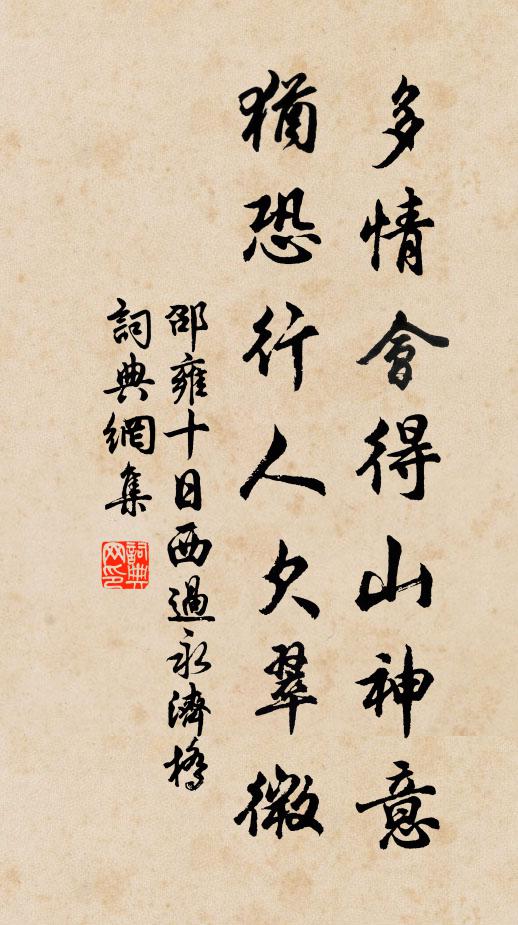 多情會得山神意
猶恐行人欠翠微
邵雍十日西過永濟橋
詞典網集
詞典网印